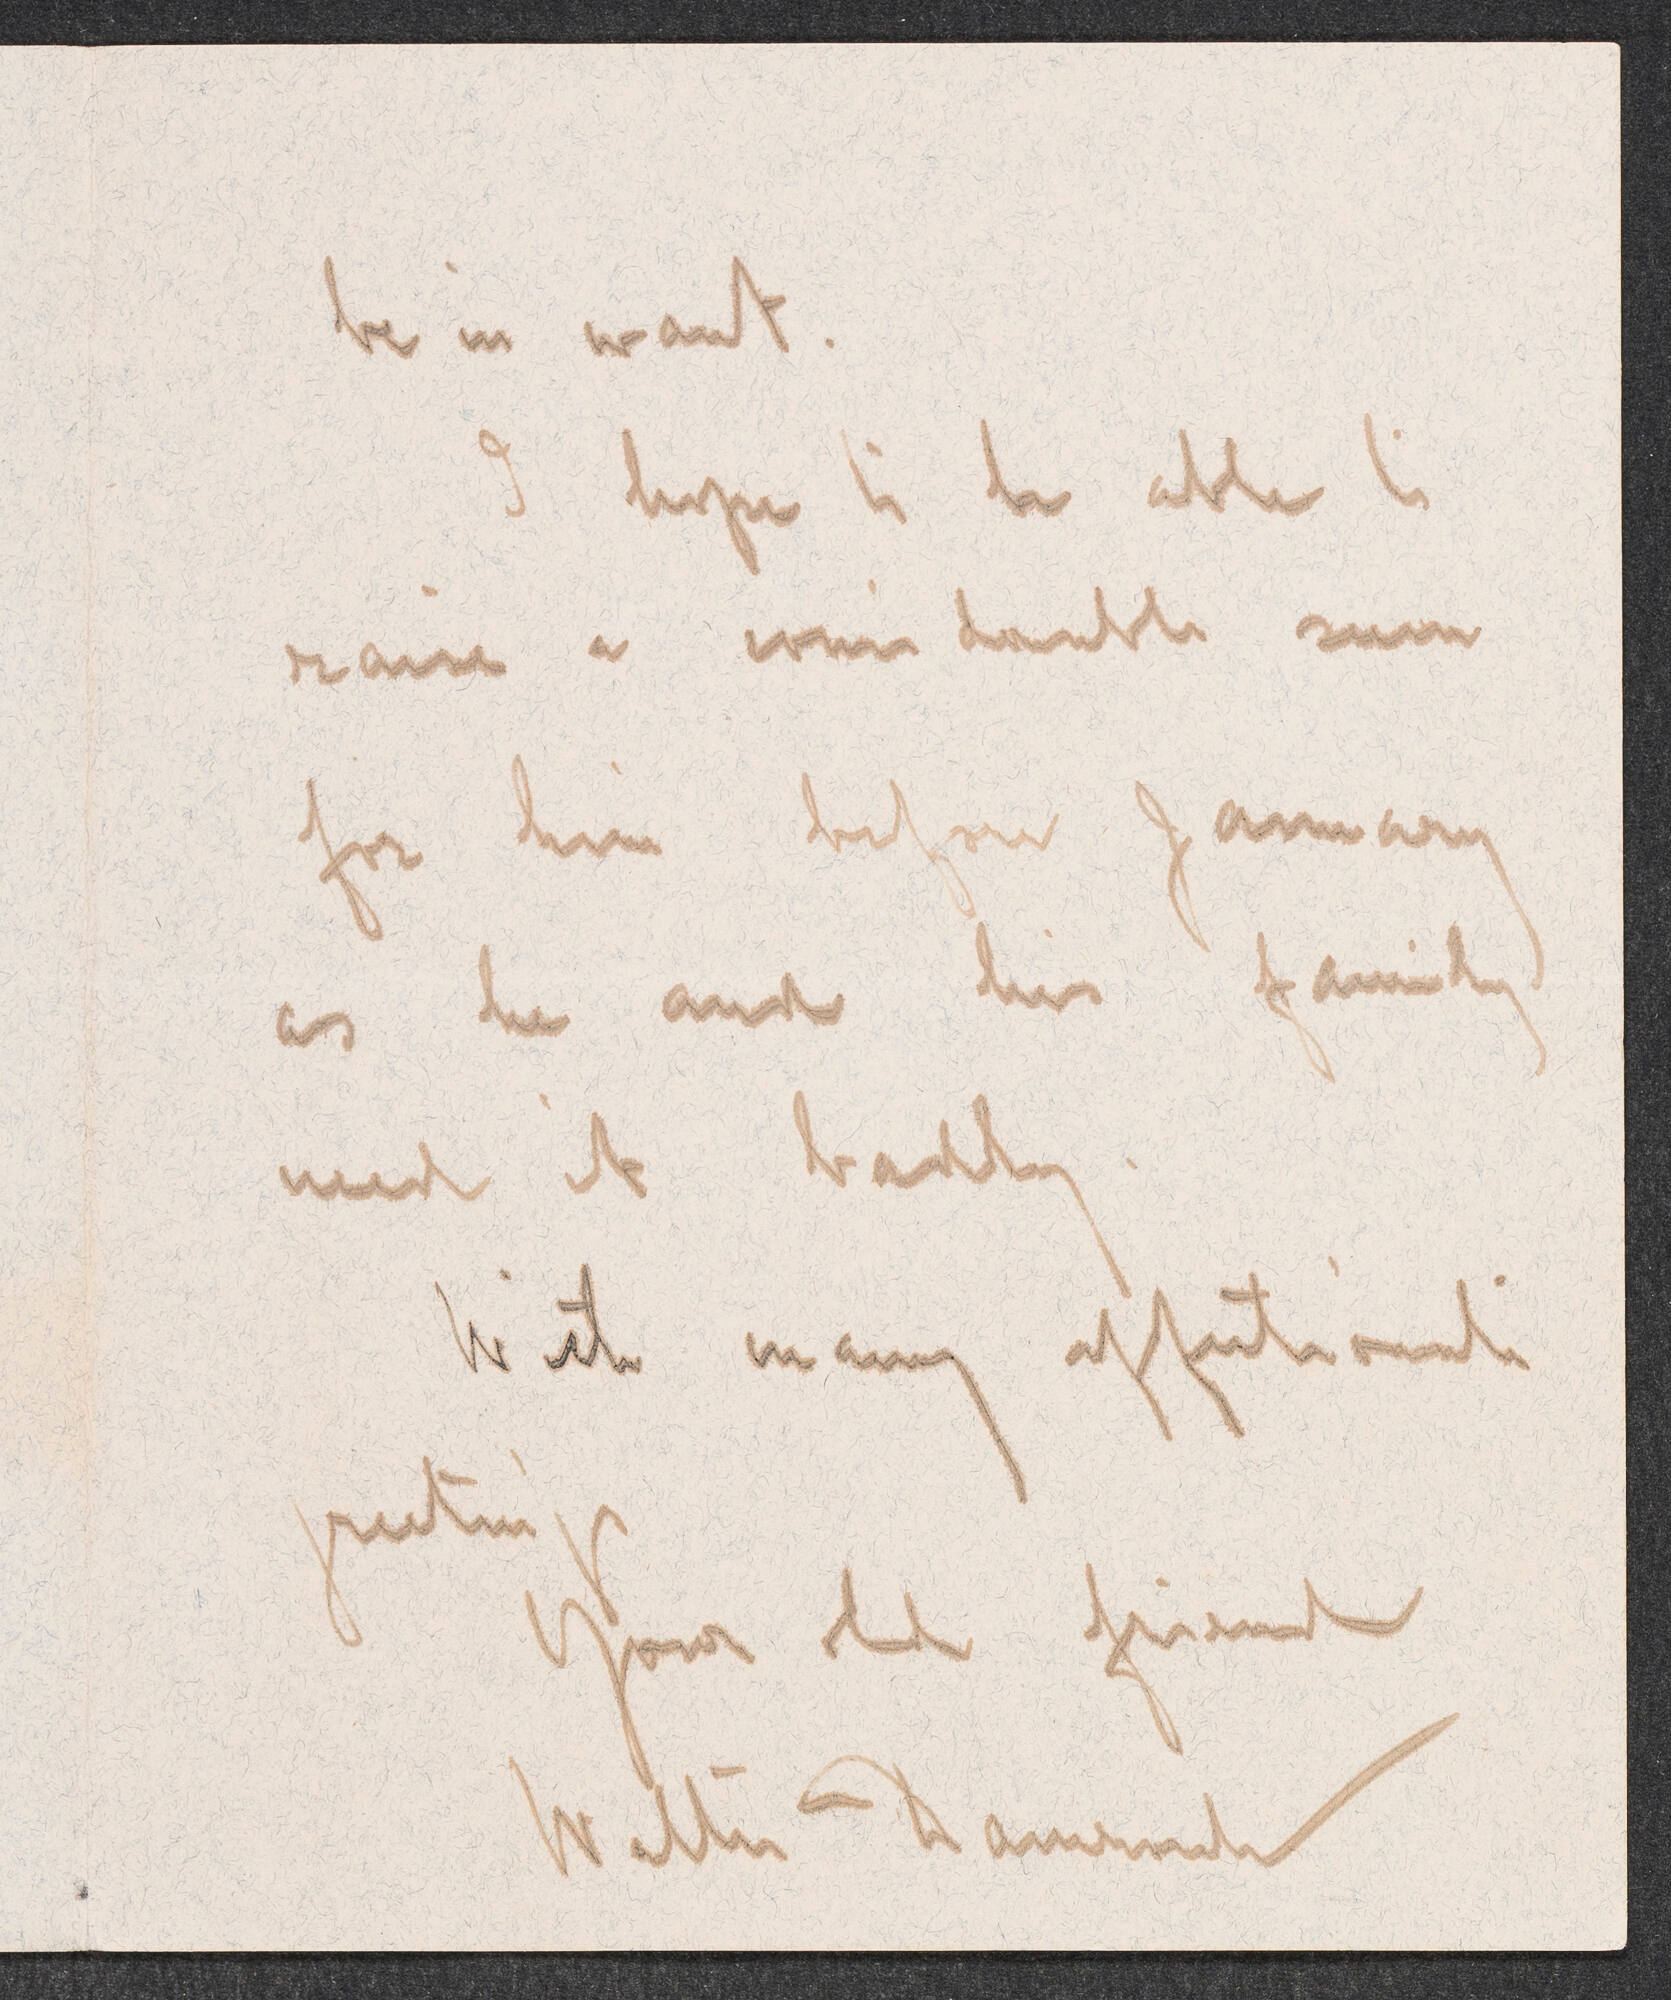 be in want.
I hope to be able to
raise a considerable sum
for him before January
as he and his family
need it badly.
With many affectionate
greetings
Your old friend
Walter Damrosch